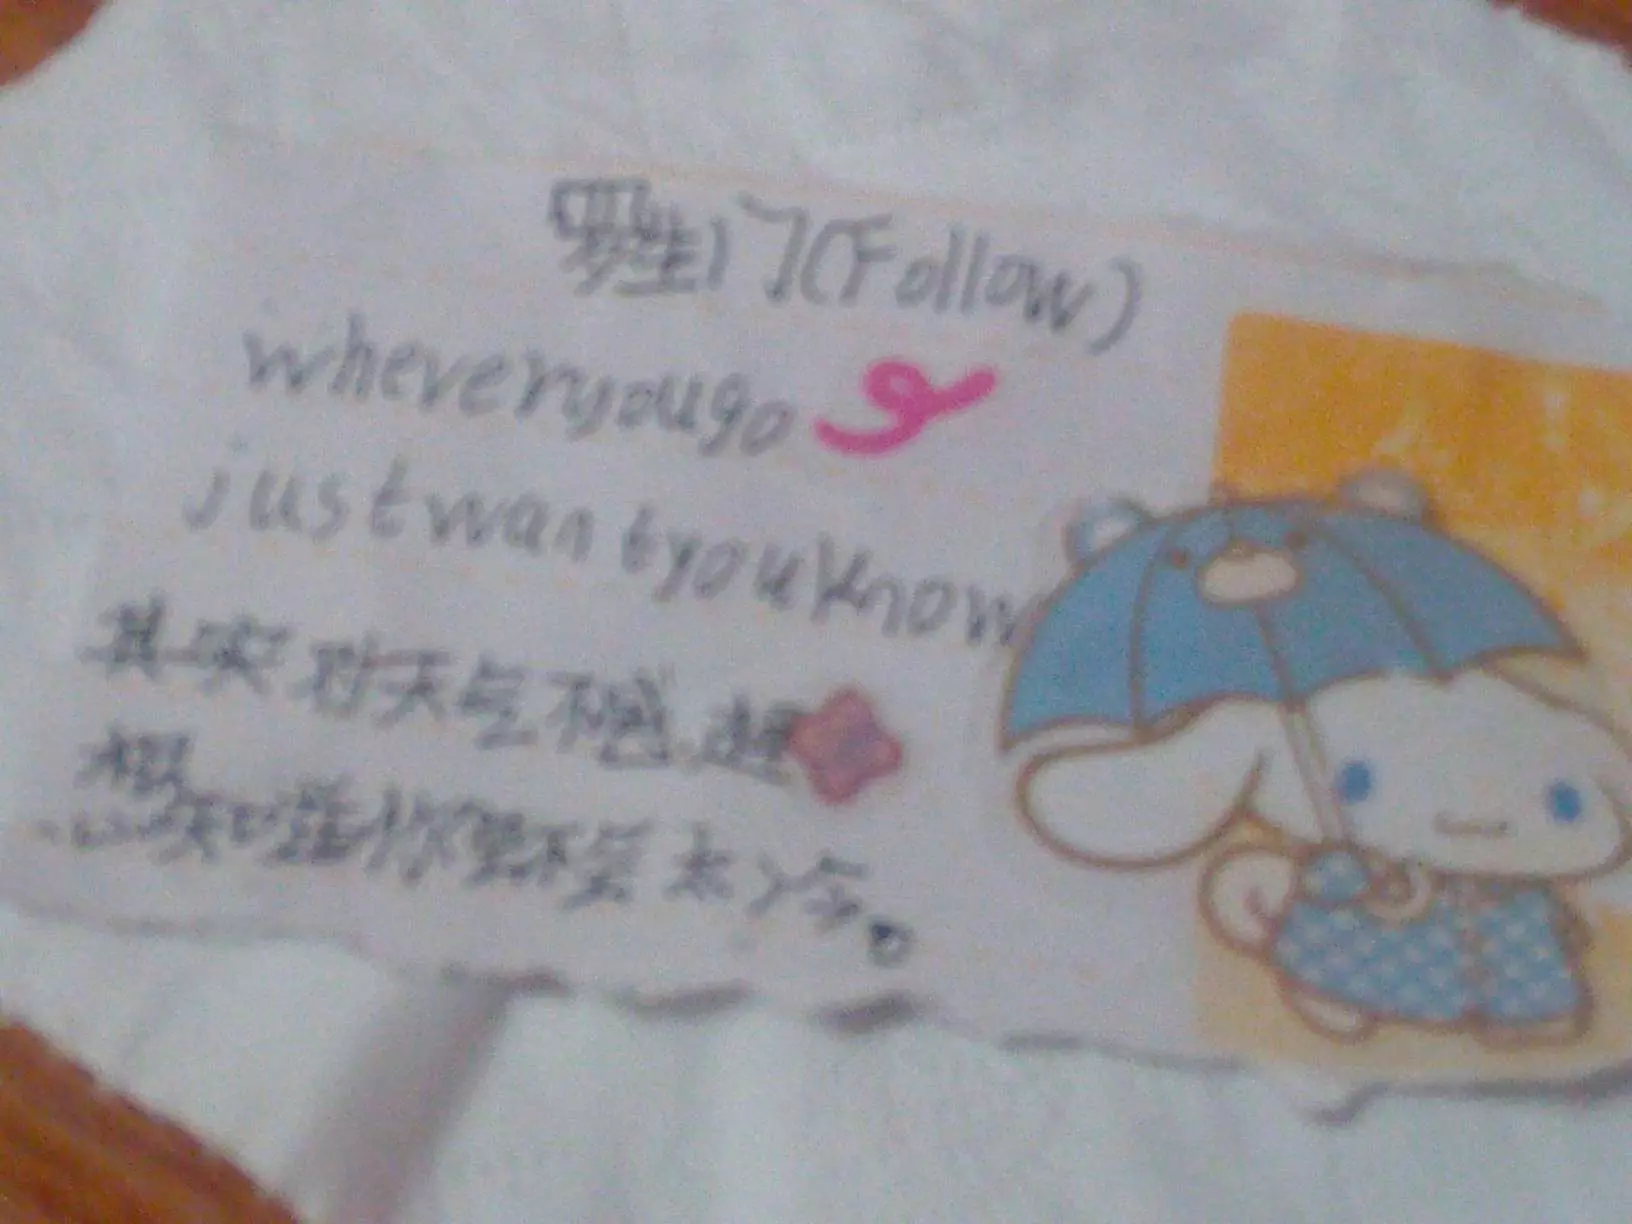 罗生门(Follow)
wherever you go
just want you know
其实对天气不感趣
想知道你那里会不会太冷。